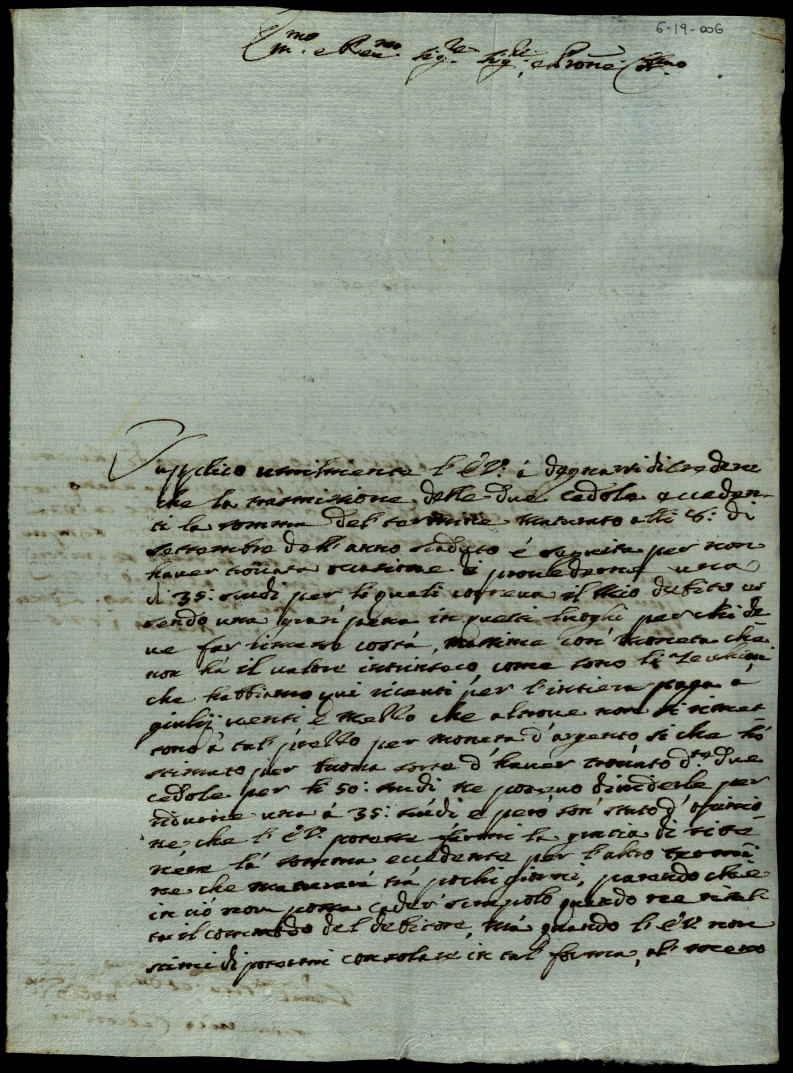 6-19-006
Em.mo e Rev.mo Sig.re Sig.re e Prone Col.mo
Supplico umilmente l'E.V. à degnarsi di credere
che la trasmissione delle due cedole ecceden-
ti la somma del termine maturato alli 8: di
Settembre dell'anno scaduto è seguita per non
haver trovata occasione di provederne una
di 35: scudi per li quali correva il mio debito es
sendo una gran pena in questi luoghi per chi de
ve far rimesse costà, massime con moneta che
non hà il valore intrinseco, come sono li Zecchini
che habbiamo qui ricevuti per l'intiera paga à
giulij venti e mezzo che altrove non si rimet
tono à tal prezzo per moneta d'argento si che hò
stimato per buona sorte d'haver trovato d.te due
cedole per li 50: scudi ne potevo dividerle per
ridurne una à 35: scudi e però son stato d'opinio
ne che l'E.V. potesse farmi la gracia di rite-
nere la somma eccedente per l'altro termi
ne che maturarà trà pochi giorni, parendo che
in ciò non possa cader scrupolo quando ne risul
ta il commodo del debitore, mà quando l'E.V. non
stimi di potermi consolare in tal forma, al meno